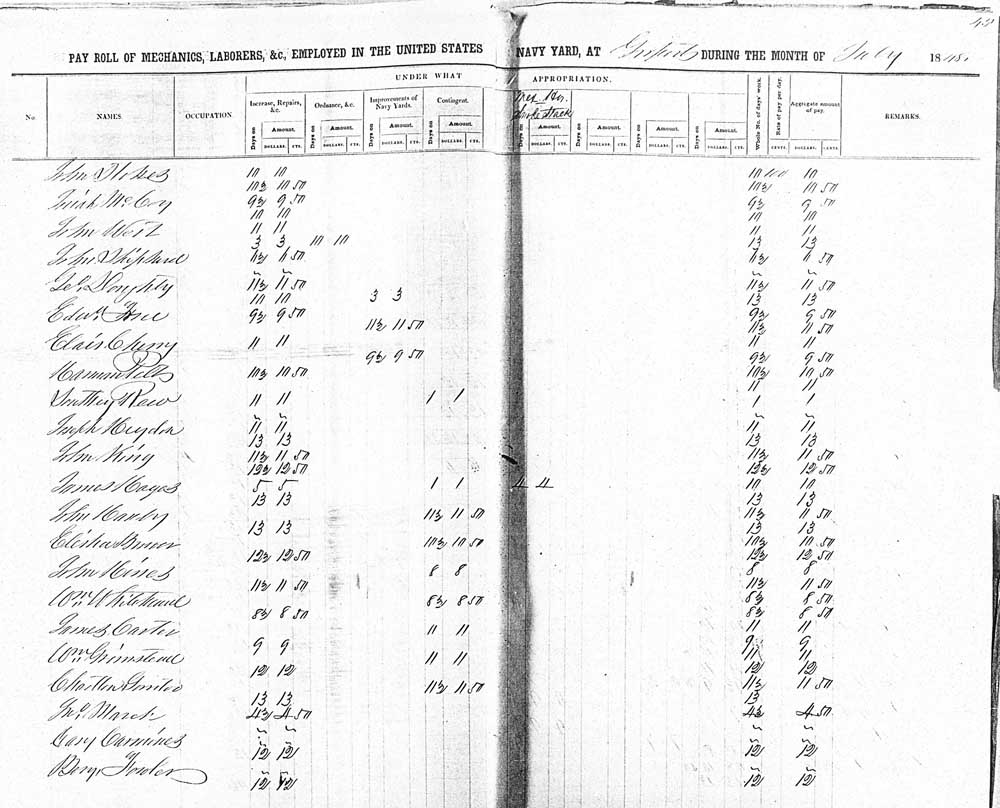 42
PAY ROLL OF MECHANICS, LABORERS, &c., EMPLOYED IN THE UNITED STATES NAVY YARD, AT Gosport DURING THE MONTH OF July 1848.
UNDER WHAT APPROPRIATION.
No NAMES OCCUPATION Increase, Repairs, &c. Ordnance, &c. Improvements of Navy Yards. Contingent. Whole No. of days' work. Rate of pay per day. Aggregate amount of pay. REMARKS.
Days on Amount. Days on Amount. Days on Amount. Days on Amount. Days on Amount. Days on Amount. Days on Amount. Days on Amount.
DOLLARS. CTS. DOLLARS. CTS. DOLLARS. CTS. DOLLARS. CTS. DOLLARS. CTS. DOLLARS. CTS. DOLLARS. CTS. DOLLARS. CTS. CENTS. DOLLARS. CENTS.
John Stokes 10 10 10 100 10
10½ 10 50 10½ 10 50
McCoy 9½ 9 50 9½ 9 50
10 10 10 10
John West 11 11 11 11
3 3 10 10 13 13
John Shipherd 11½ 11 50 11½ 11 50
Doughty 11½ 11 50 11½ 11 50
10 10 3 3 13 13
Edwd. 9½ 9 50 9½ 9 50
11½ 11 50 11½ 11 50
Cherry 11 11 11 11
9½ 9 50 9½ 9 50
10½ 10 50 10½ 10 50
11 11
11 11 1 1 1 1
Joseph Heydon 11 11 11 11
13 13 13 13
John King 11½ 11 50 11½ 11 50
12½ 12 50 12½ 12 50
James Hayes 5 5 1 1 4 4 10 10
13 13 13 13
John Hanby 11½ 11 50 11½ 11 50
13 13 13 13
Elisha 10½ 10 50 10½ 10 50
12½ 12 50 12½ 12 50
John Hines 8 8 8 8
11½ 11 50 11½ 11 50
Wm. Whitehead 8½ 8 50 8½ 8 50
8½ 8 50 8½ 8 50
James Carter 11 11 11 11
9 9 9 9
Wm. Grimstead 11 11 11 11
12 12 12 12
11½ 11 50 11½ 11 50
13 13 13
Jno. March 4½ 4 50 4½ 4 50
Cary Carmines 12 12 12 12
Benj. Fowler 12 12 12 12